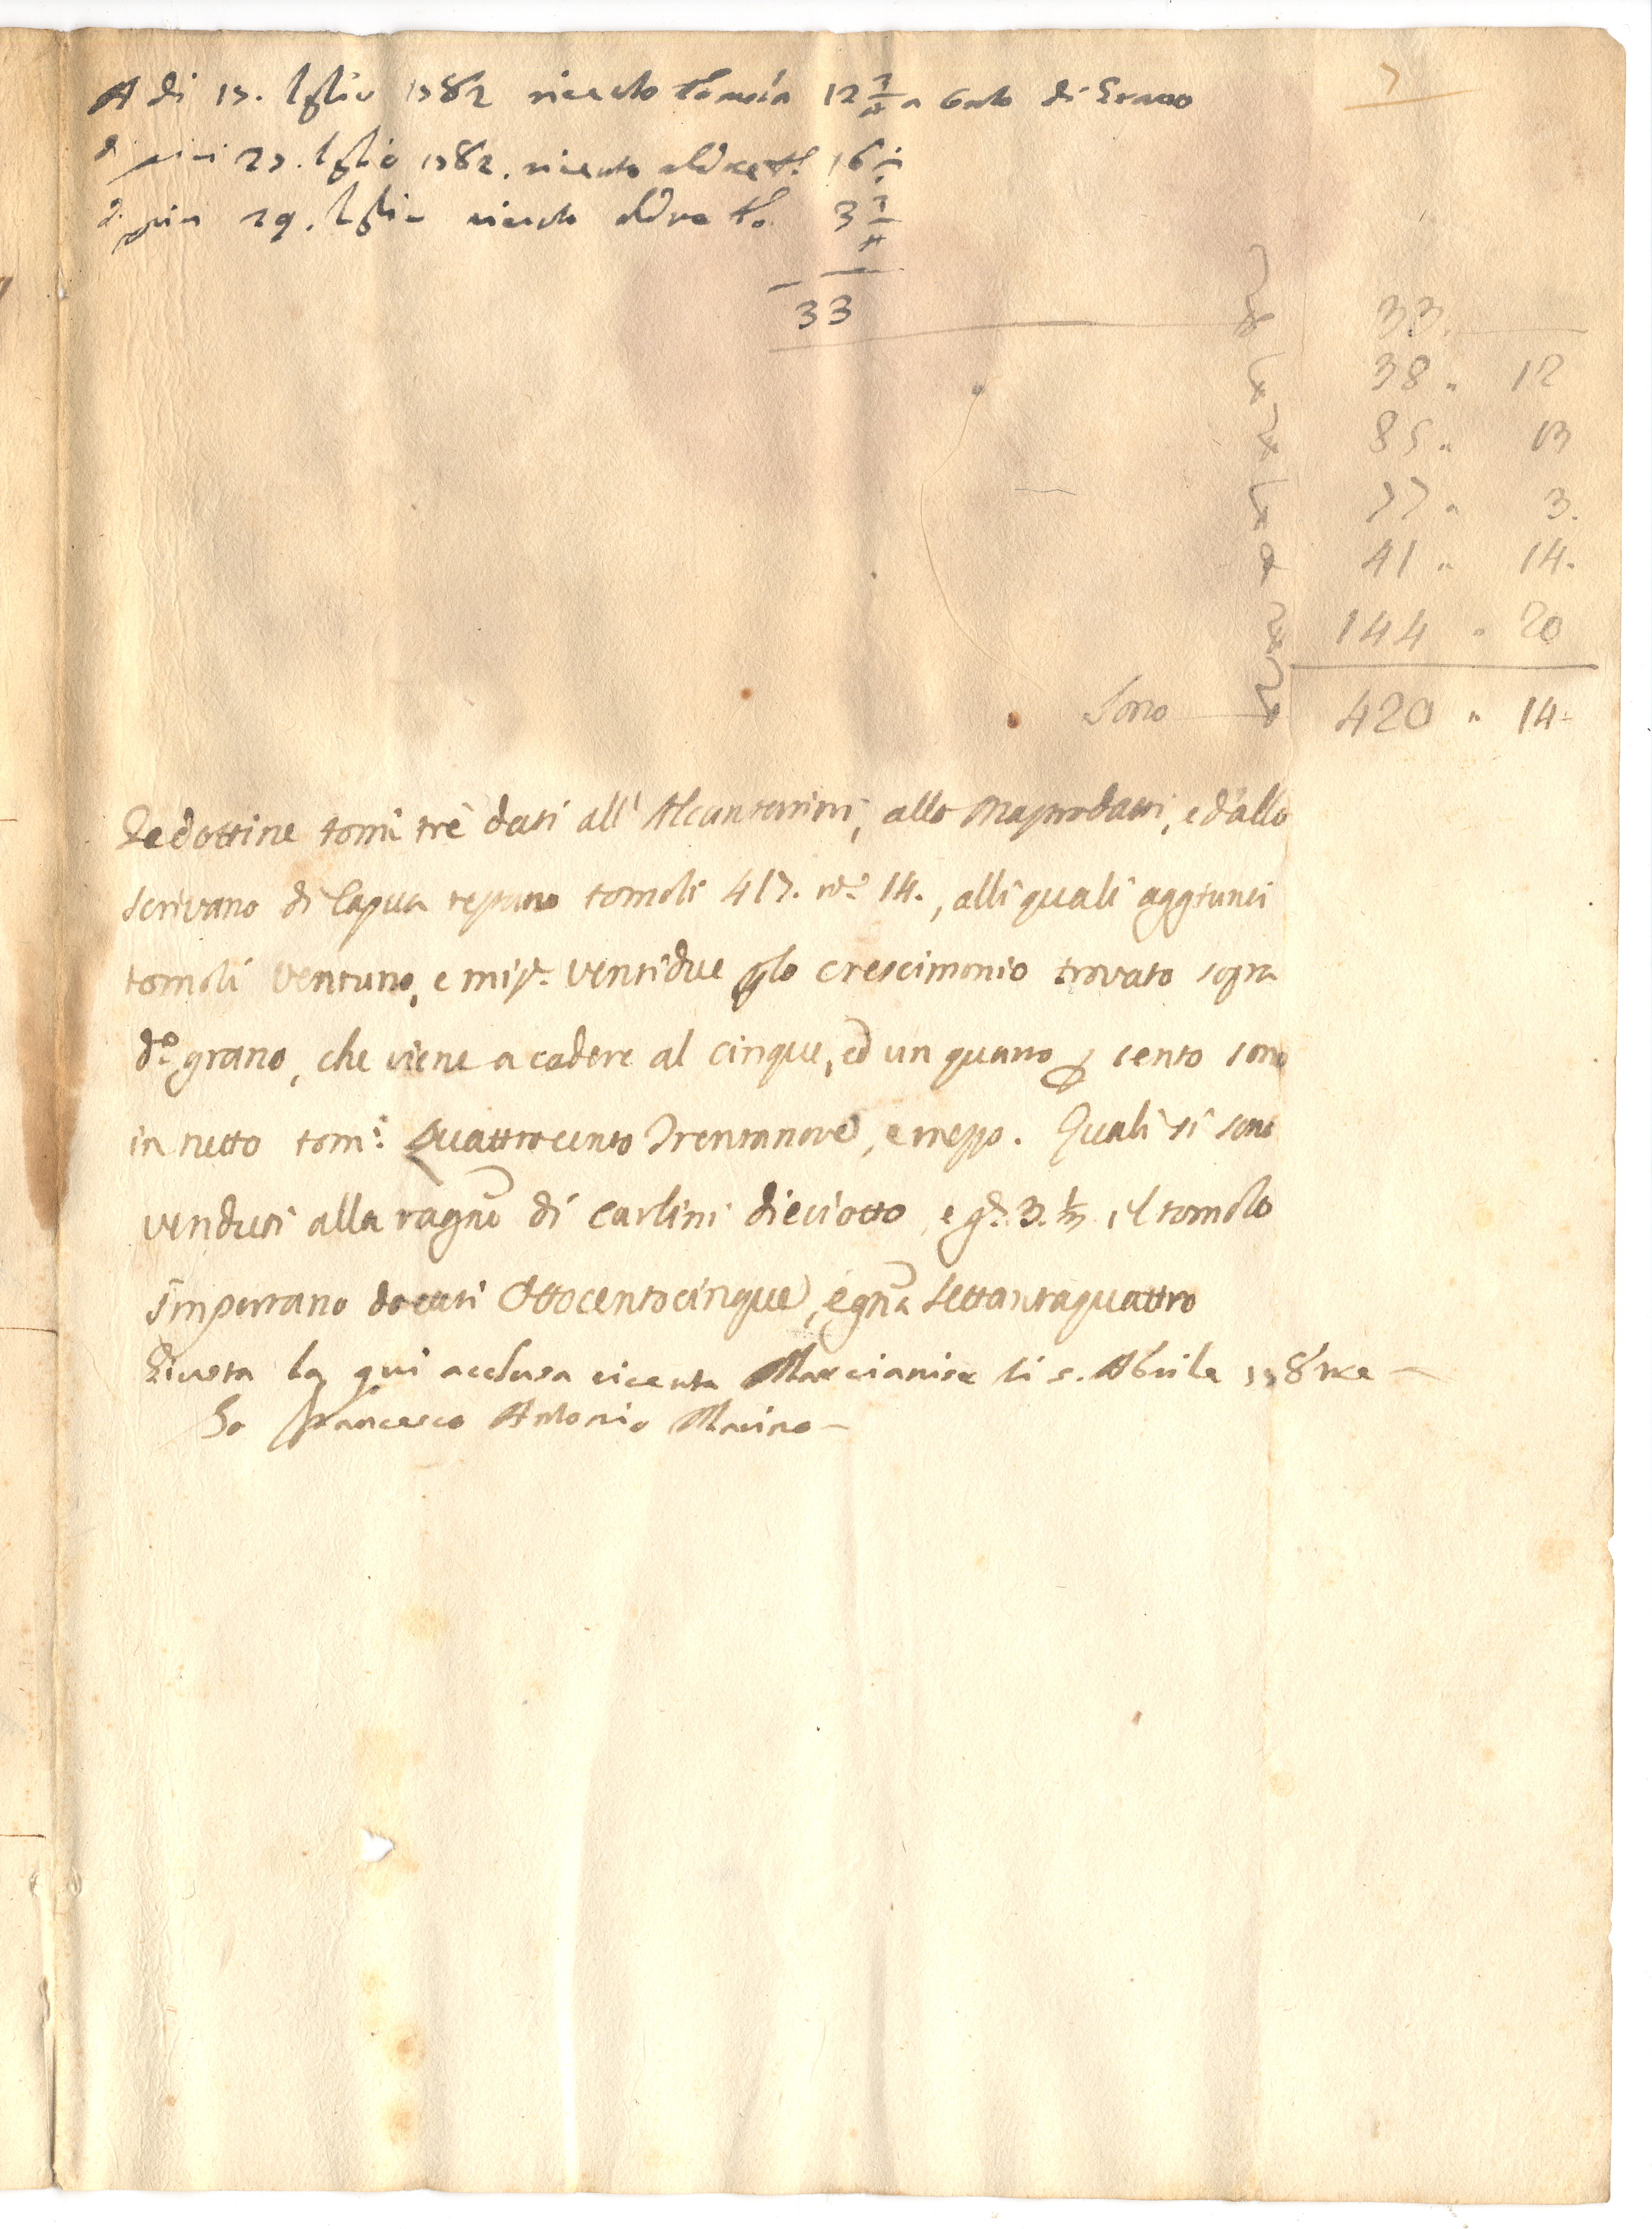 7
A di 17. lglio 1782 riceuto tomola 12 1/4 a conto di Grano
di più 27. lglio 1782. riceuto altre t.
di più 29. lglio riceuto altre to. 3 1/4
33
33.
38 " 12
85 " 13
77 " 3.
41 " 14.
144 " 20
Sono 420 " 14.
Dedottine tom: trè dati all' , allo Mastrodatti, ed allo
scrivano di Capua restano tomoli 417. m:e 14., alli quali aggiunti
tomoli ventuno, e mis:e ventidue p lo crescimonio trovato sopra
d:o grano, che viene a cadere al cinque, ed un quarto p cento sono
in tutto tom:i Quattrocento Trentanove, e mezzo. Quali si sono
venduti alla ragne di Carlini dieciotto, e g:a 3. 1/2 il tomolo
Importano docati Ottocentocinque, e gna Settantaquattro
Giusta la qui acclusa riceuta Marcianise li 5. Abrile 178
Io Francesco Antonio Marino